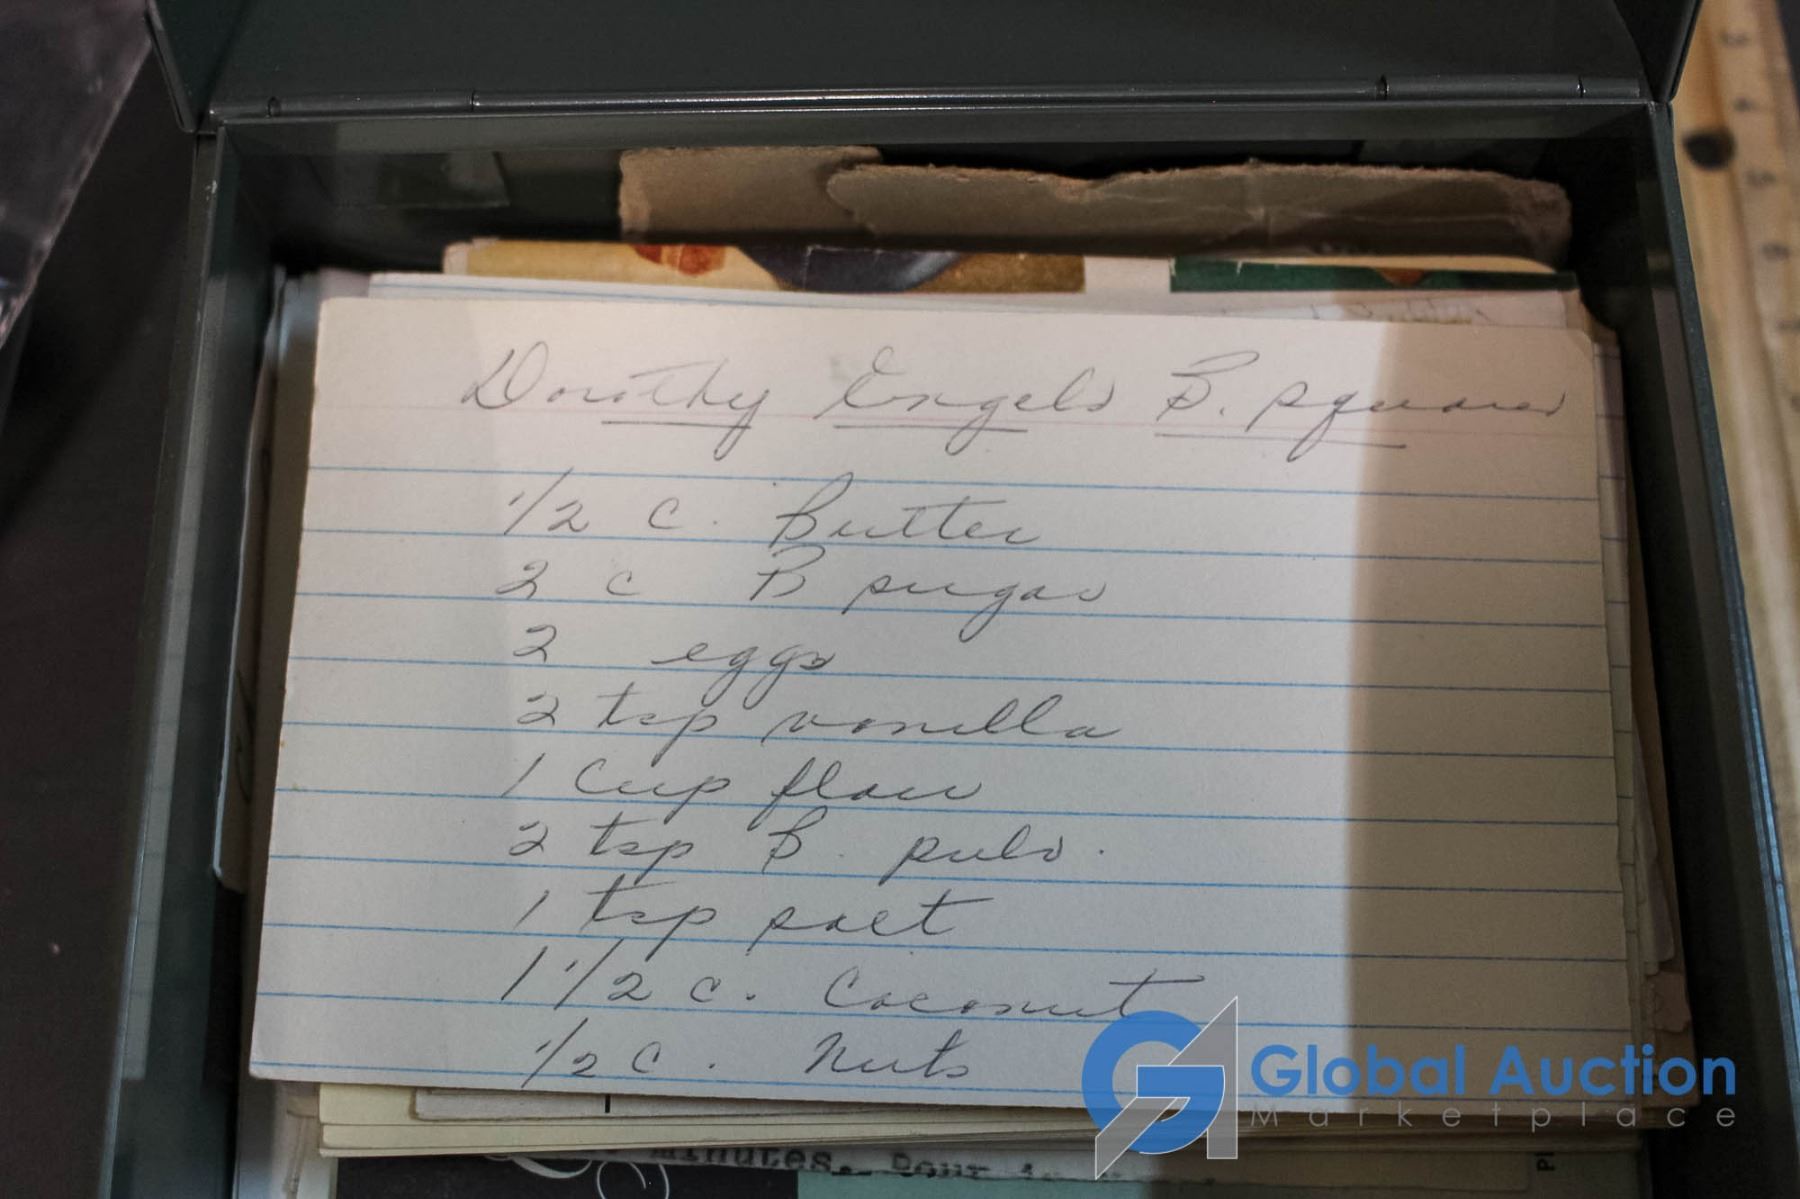 Dorothy Engels B. squares
1/2 c. Butter
2 c B sugar
2 eggs
2 tsp vanilla
1 Cup flour
2 tsp B. pwd.
1 tsp salt
1 1/2 c. Coconut
1/2 c. Nuts
Global Auction
Marketplace
Minutes. Pour